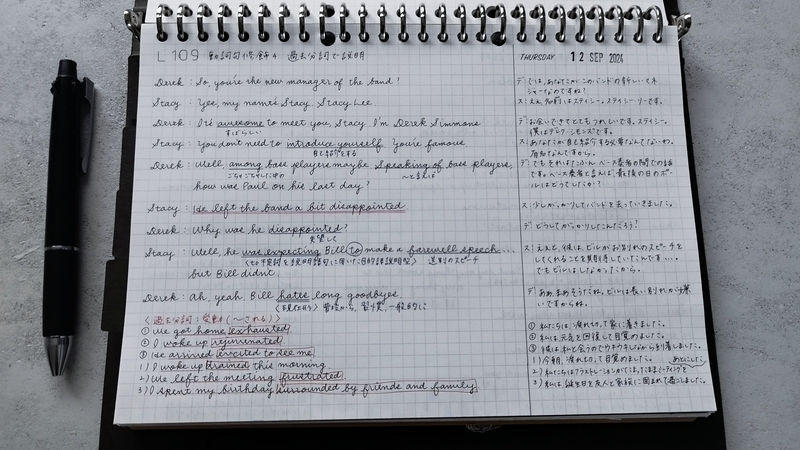 L 109 動詞句修飾4 過去分詞で説明
THURSDAY 12 SEP 2024
Derek : So, you're the new manager of the band?
Stacy : Yes, my name's Stacy. Stacy Lee.
Derek : It's awesome to meet you, Stacy. I'm Derek Simmons.
すばらしい
Stacy : You don't need to introduce yourself. You're famous.
自己紹介をする
Derek : Well, among bass players maybe. Speaking of bass players,
〜と言えば
how was Paul on his last day?
Stacy : He left the band a bit disappointed.
Derek : Why was he disappointed?
失望して
Stacy : Well, he was expecting Bill to make a farewell speech...
送別のスピーチ
but Bill didn't.
Derek : Ah, yeah. Bill hates long goodbyes.
〈過去分詞 : 受動(〜される)〉
① We got home exhausted.
② I woke up rejuvenated.
③ He arrived excited to see me.
1) I woke up drained this morning.
2) We left the meeting frustrated.
3) I spent my birthday surrounded by friends and family.
デ: では、あなたがこのバンドの新しいマネ
ージャーなのですね?
ス: ええ、名前はステイシー。ステイシー・リーです。
デ: お会いできてとてもうれしいです、ステイシー。
僕はデレク・シモンズです。
ス: あなたが自己紹介する必要なんてないわ。
有名なんですから。
デ: でもそれはたぶんベース奏者の間での話
です。ベース奏者と言えば、最後の日のポー
ルはどうでしたか?
ス: 少しがっかりしてバンドを去っていきました。
デ: どうしてがっかりしてたんだろう?
ス: ええと、彼は、ビルがお別れのスピーチを
してくれることを期待していたんです…。
でもビルはしなかったから。
デ: ああ、まあそうだね。ビルは長い別れが嫌
いですからね。
① 私たちは、疲れ切って家に着きました。
② 私は、元気を回復して目覚めました。
③ 彼は私と会うのでウキウキしながら到着しました。
1) 今朝、疲れ切って目覚めました。
2) 私たちはフラストレーションがたまったままミーティングを
あとにした。
3) 私は、誕生日を友人と家族に囲まれて過ごしました。